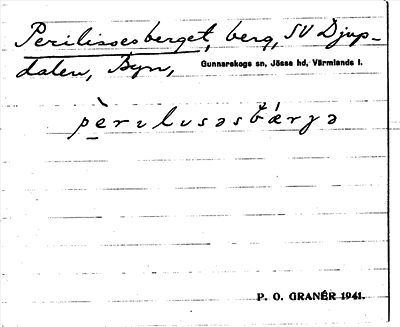 Perilissesberget, berg, SV Djup-
dalen, Byn, Gunnarskogs sn, Jösse hd, Värmlands l.
pèrɩlɩsəsbá̄rjə
P. O. GRANÉR 1941.